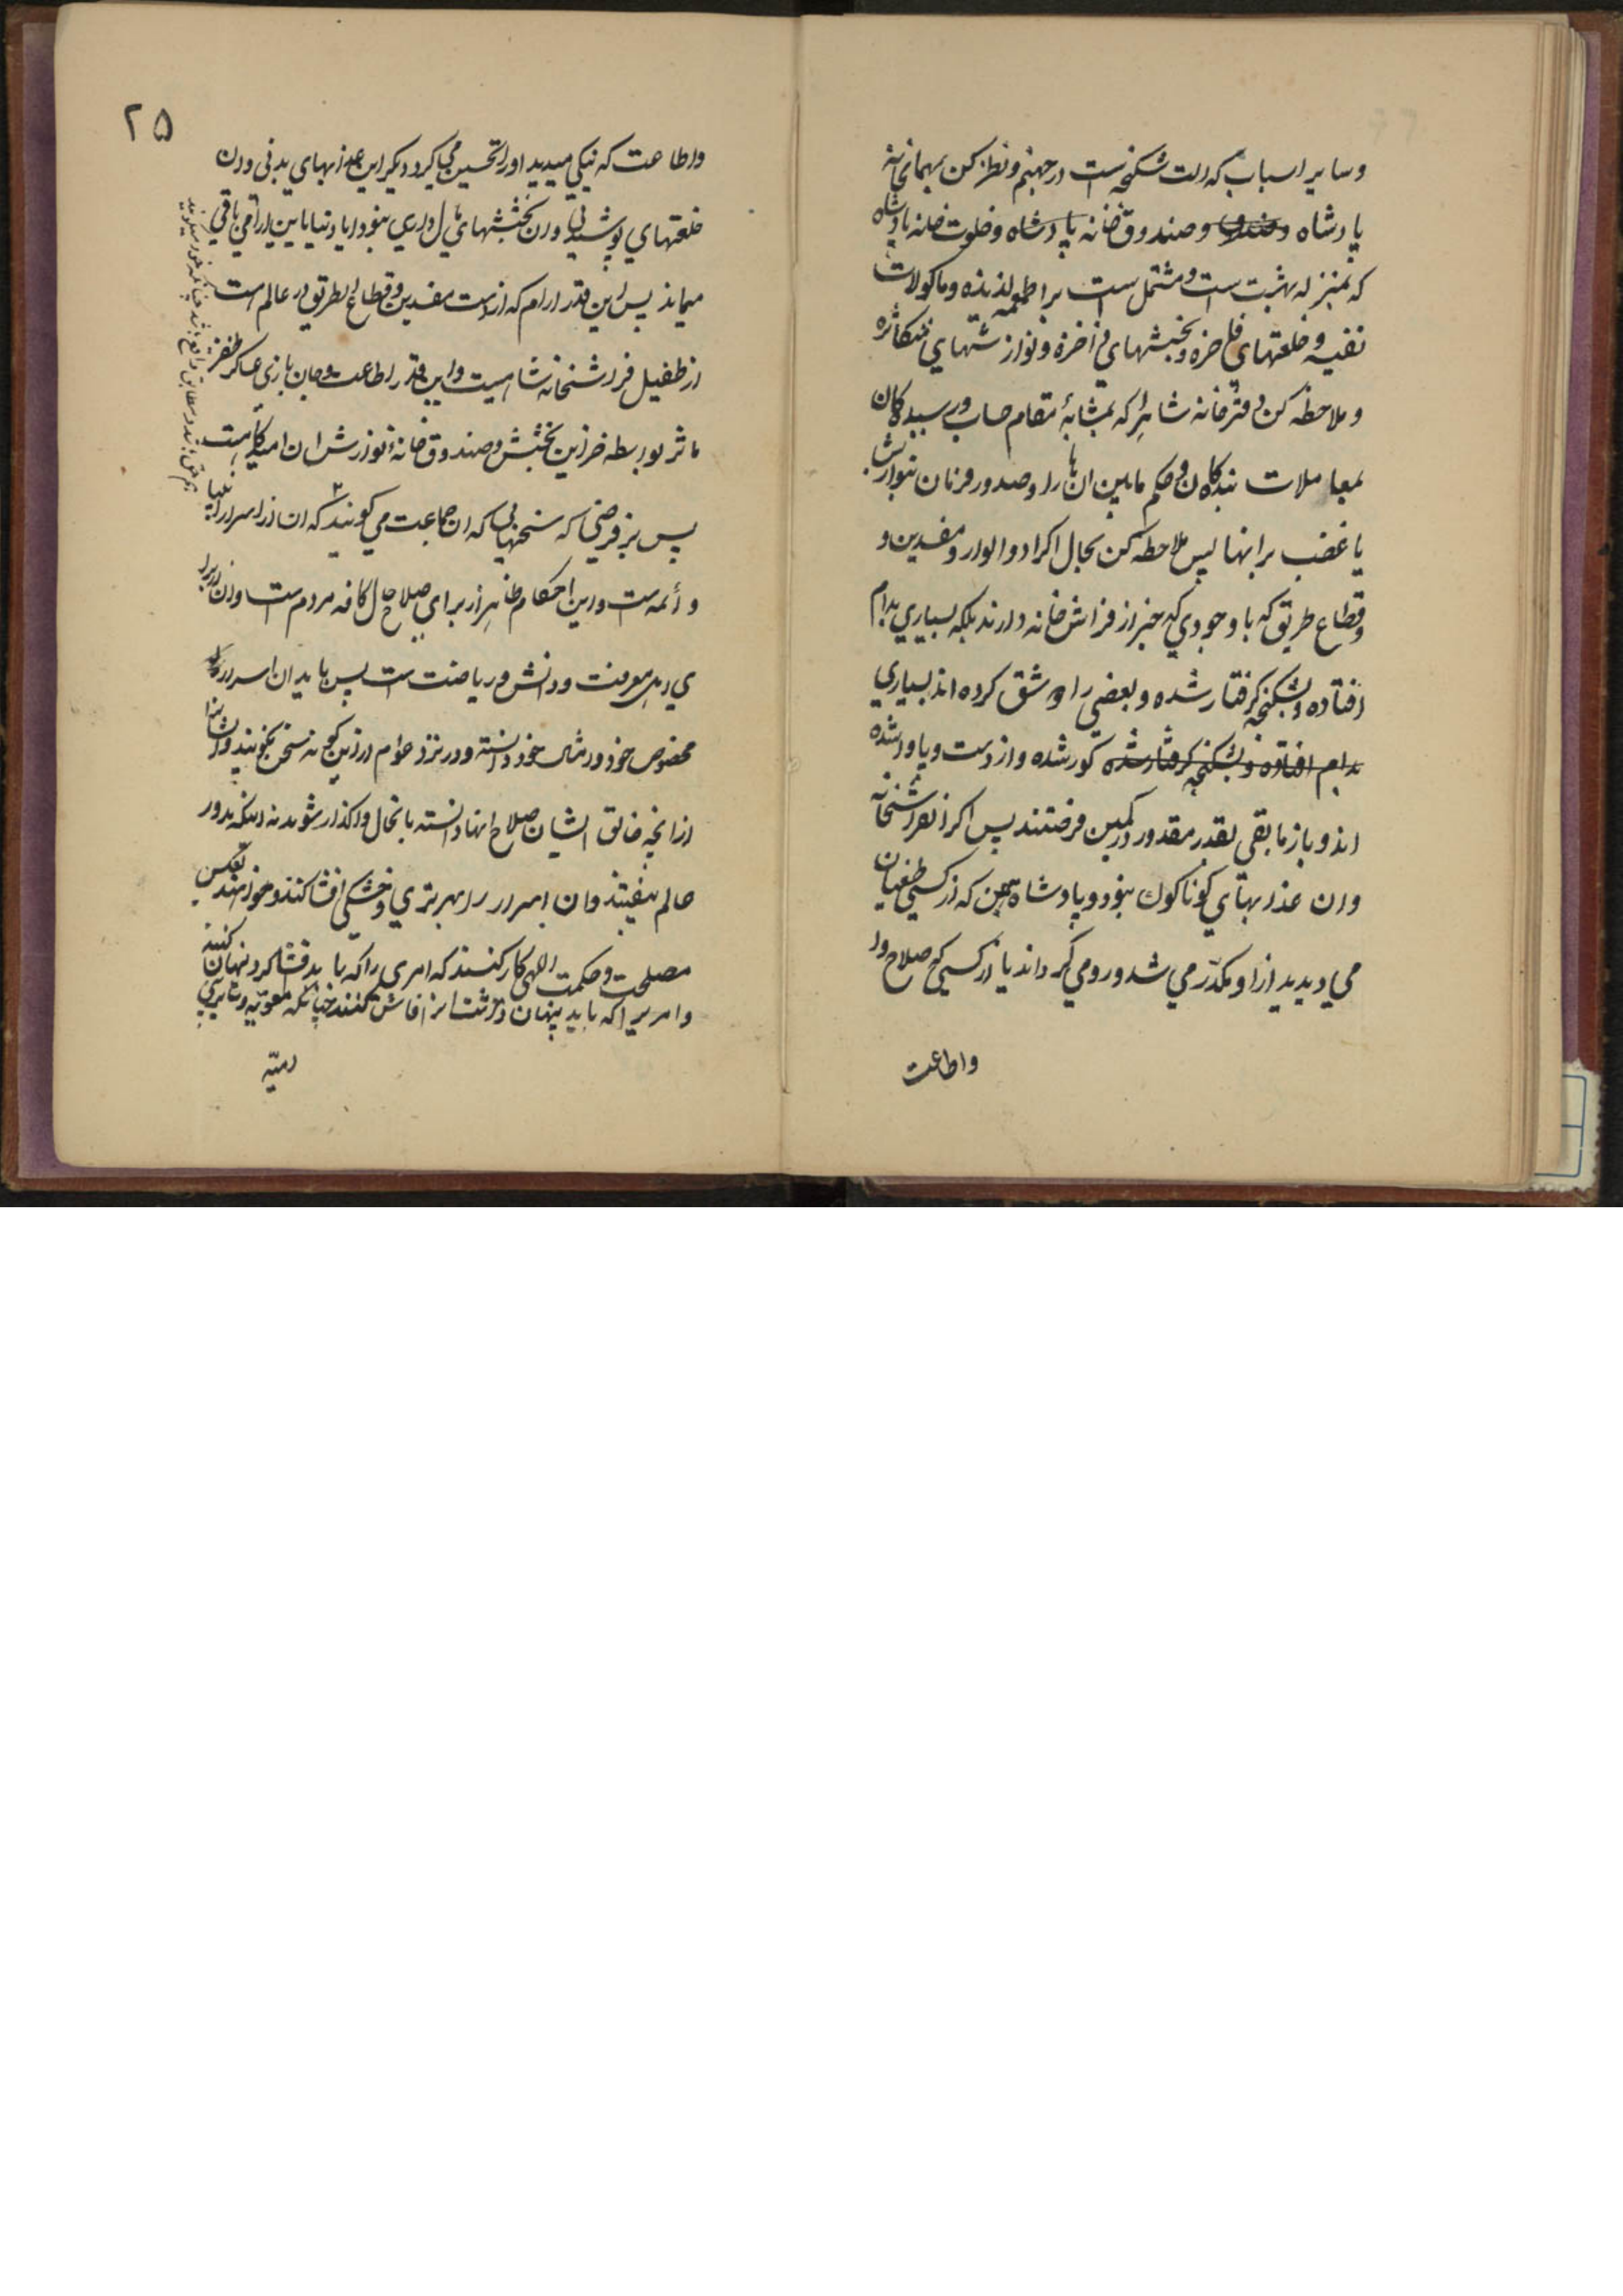 وسایر اسباب که الت شکنجه است در جهنم و نظر کن بمهمانخانه
پادشاه و صندوق خانه پادشاه و خلوت خانه پادشاه
که بمنزله بهشت است و مشتمل است بر اطعمه لذیذه و ماکولات
نفیسه و خلعتهای فاخره و بخششهای فاخره و نوازشهای متکاثره
و ملاحظه کن دفترخانه شاهرا که بمثابهٔ مقام حساب ورسیدکان
بمعاملات بندکان و حکم مابین انها را و صدور فرمان بنوازش
یا غضب برانها پس ملاحظه کن بحال اکراد و الوار و مفسدین و
قطاع طریق که با وجودی که خبر از فراش خانه دارند بلکه بسیاری بدام
افتاده و بشکنجه کرفتار شده و بعضی را شق کرده اند بسیاری
بدام افتاده و بشکنجه کرفتار شده کور شده و از دست و پا
اند و باز مابقی بقدر مقدور در کمین فرصتند پس اکر فراشخانه
و ان عذابهای کوناکون نبود و پادشاه همین که از کسی طغیان
می دیدید از او مکدر می شد و رو می گرداند یا از کسی که صلاح و
واطاعت
۲۵
واطاعت که نیکی میدید او را تحسین می کرد دیکر این عذابهای بدنی و ان
خلعتهای پوشیدنی و ان بخششهای مال داری نبود ایا دنیا باین ارامی باقی
میماند پس این قدر ارام که از دست مفسدین و قطاع الطریق در عالم است
از طفیل فراشخانه شاهیست و این قدر اطاعت و جان بازی عساکر ظفر
ماثر بواسطه خزاین بخشش و صندوق خانهٔ نوازش ان
پس بر فرضی که سخنهایی که ان جماعت می کویند که ان از اسرار انبیا
و ائمه است و این احکام ظاهر از برای صلاح حال کافه مردم است و ان از برای
اهل معرفت و دانش و ریاضت است پس باید ان اسرار را
مخصوص خود و امثال خود دانسته و در نزد عوام ازین کونه سخن نکویند و ایشانرا
از انچه خالق ایشان صلاح انها دانسته بانحال واکذار شوند نه اینکه بدور
عالم بیفتند و ان اسرار را بهر تری و خشکی افشا کنند و خواهند بعکس
مصلحت و حکمت اللهی کار کنند که امری را که باید فشا کرد نهان کنند
و امریرا که باید پنهان داشت انرا فاش کنند چنانکه معویه و سایر بنی
امیّه